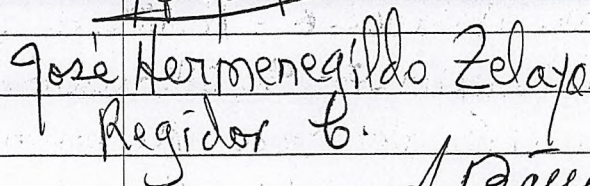 José Hermenegildo Zelaya
Regidor 6.